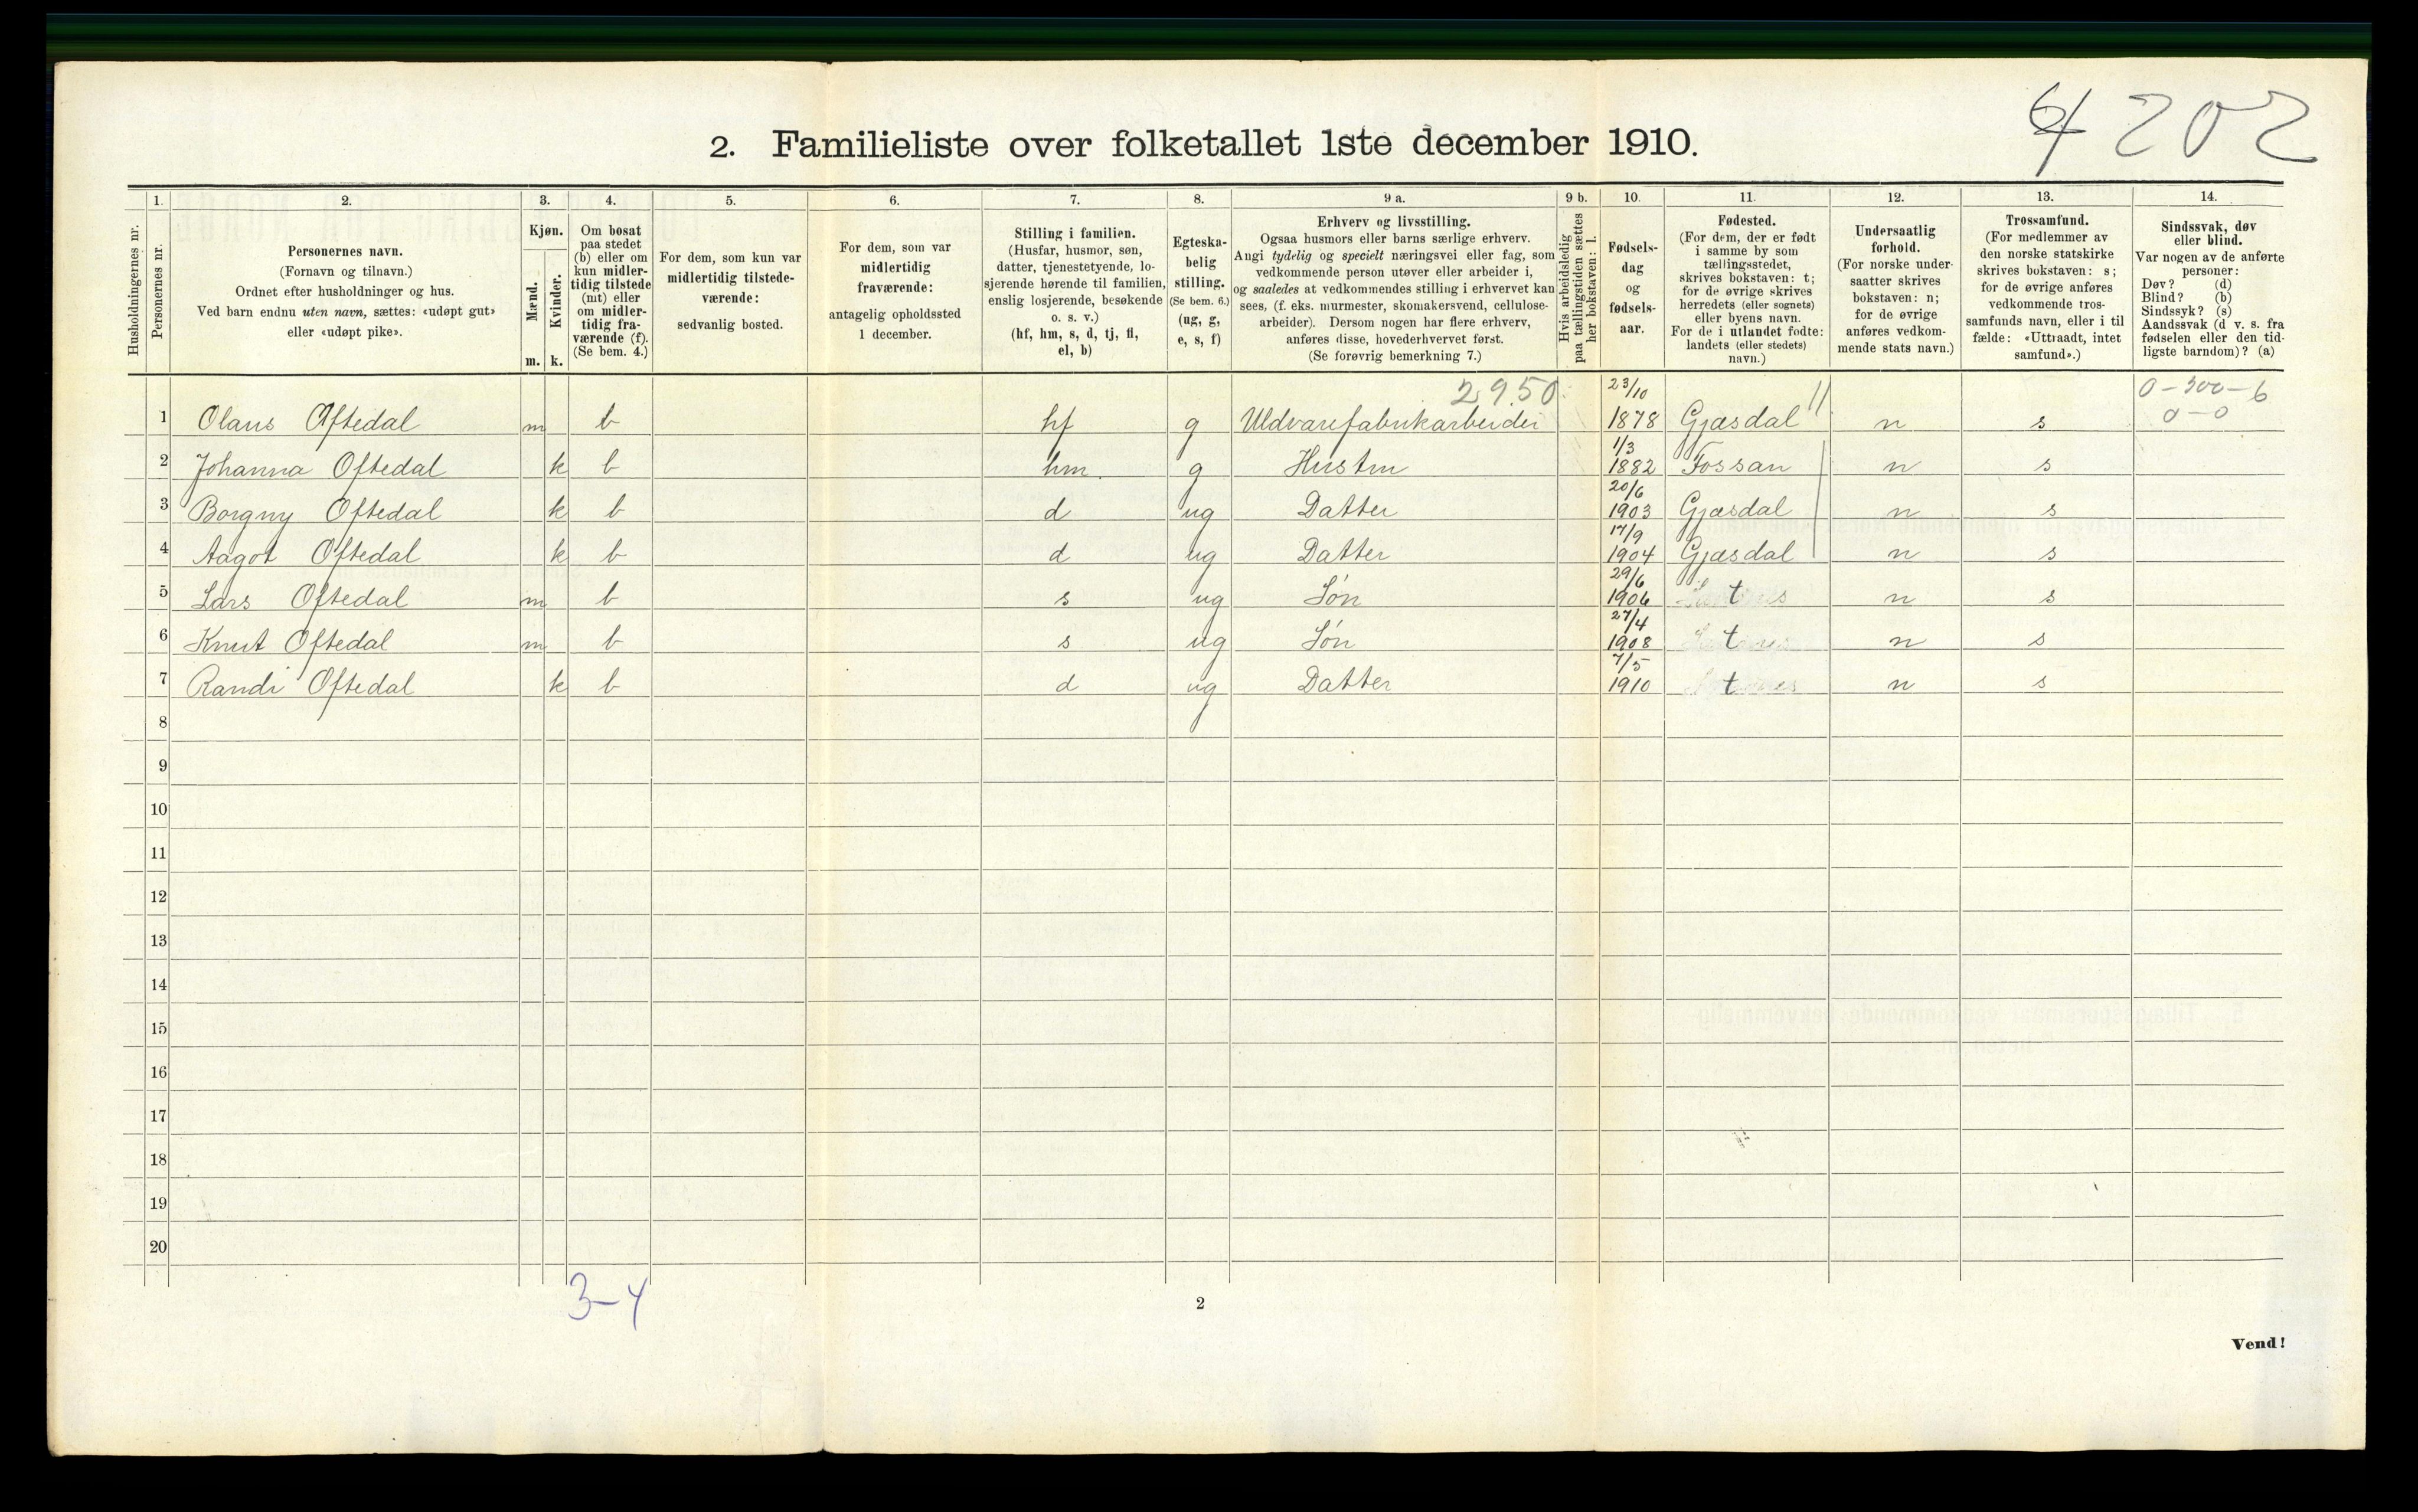 64 202
2. Familieliste over folketallet 1ste december 1910.
1. 2. 3. 4. 5. 6. 7. 8. 9 a. 9 b. 10. 11. 12. 13. 14.
Husholdningernes nr.
Personernes nr.
Personernes navn.
(Fornavn og tilnavn.)
Ordnet efter husholdninger og hus.
Ved barn endnu uten navn, sættes: «udøpt gut»
eller «udøpt pike».
Kjøn.
Mænd.
m.
Kvinder.
k.
Om bosat
paa stedet
(b) eller om
kun midler-
tidig tilstede
(mt) eller
om midler-
tidig fra-
værende (f).
(Se bem. 4.)
For dem, som kun var
midlertidig tilstede-
værende:
sedvanlig bosted.
For dem, som var
midlertidig
fraværende:
antagelig opholdssted
1 december.
Stilling i familien.
(Husfar, husmor, søn,
datter, tjenestetyende, lo-
sjerende hørende til familien,
enslig losjerende, besøkende
o. s. v.)
(hf, hm, s, d, tj, fl,
el, b)
Egteska-
belig
stilling.
(Se bem. 6.)
(ug, g,
e, s, f)
Erhverv og livsstilling.
Ogsaa husmors eller barns særlige erhverv.
Angi tydelig og specielt næringsvei eller fag, som
vedkommende person utøver eller arbeider i,
og saaledes at vedkommendes stilling i erhvervet kan
sees, (f. eks. murmester, skomakersvend, cellulose-
arbeider). Dersom nogen har flere erhverv,
anføres disse, hovederhvervet først.
(Se forøvrig bemerkning 7.)
Hvis arbeidsledig
paa tællingstiden sættes
her bokstaven: l.
Fødsels-
dag
og
fødsels-
aar.
Fødested.
(For dem, der er født
i samme by som
tællingsstedet,
skrives bokstaven: t;
for de øvrige skrives
herredets (eller sognets)
eller byens navn.
For de i utlandet fødte:
landets (eller stedets)
navn.)
Undersaatlig
forhold.
(For norske under-
saatter skrives
bokstaven: n;
for de øvrige
anføres vedkom-
mende stats navn.)
Trossamfund.
(For medlemmer av
den norske statskirke
skrives bokstaven: s;
for de øvrige anføres
vedkommende tros-
samfunds navn, eller i til
fælde: «Uttraadt, intet
samfund».)
Sindssvak, døv
eller blind.
Var nogen av de anførte
personer:
Døv? (d)
Blind? (b)
Sindssyk? (s)
Aandssvak (d v. s. fra
fødselen eller den tid-
ligste barndom)? (a)
2950 23/10 0-300-6
1 Olaus Oftedal m b hf g Uldvarefabrikarbeider 1878 Gjæsdal n s 0-0
1/3
2 Johanna Oftedal k b hm. g Hustru 1882 Fossan n s
20/6
3 Borgny Oftedal k b d ug Datter 1903 Gjæsdal n s
17/9
4 Aagot Oftedal k b d ug Datter 1904 Gjæsdal n s
29/6
5 Lars Oftedal m b s ug Søn 1906 t n s
27/4
6 Knut Oftedal m b s ug Søn 1908 t n s
7/5
7 Randi Oftedal k b d ug Datter 1910 t n s
8
9
10
11
12
13
14
15
16
17
18
19
20
3-4
2
Vend!